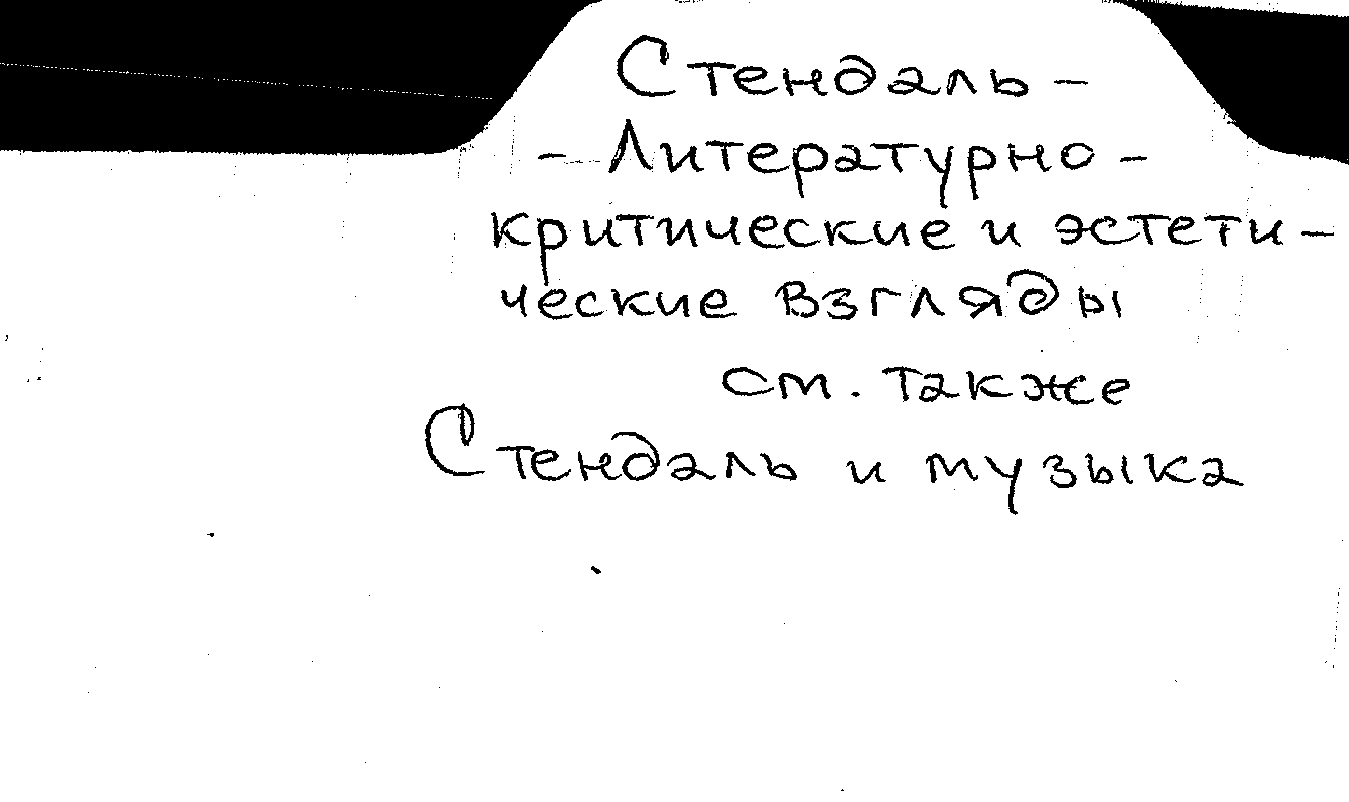 Стендаль –
– Литературно –
критические и эстети –
ческие взгляды
см. также
Стендаль и музыка